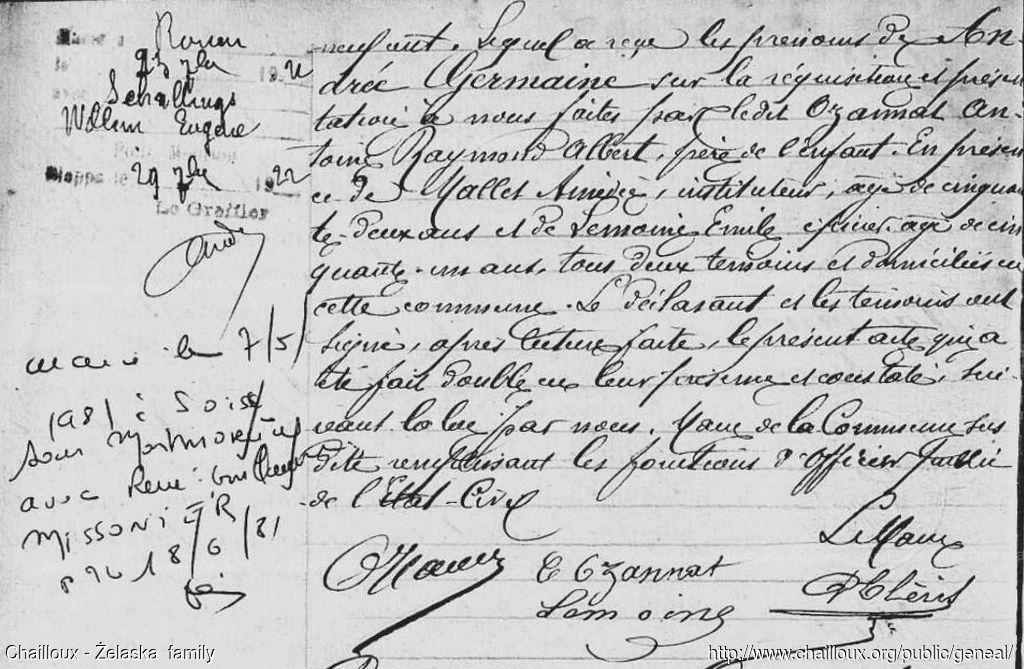 Rouen
23 7bre 1921
Schallings
Willem Eugène
Dieppe le 29 7bre 1922
Le Greffier
marié le 7/5/
1981 à Soisy
sous Montmorency
avec René
MISSONIER
18/6/81
enfant. Lequel a reçu les prénoms de An-
drée Germaine sur la réquisition et présen
tation à nous faites par ledit Ozannat An-
toine Raymond Albert, père de l'enfant. En présen
ce de Mallet Amédée, instituteur, âgé de cinquan
te-deux ans et de Lemoine Emile épicier, âgé de cin
quante-un ans, tous deux témoins et domiciliés en
cette commune. Le déclarant et les témoins ont
signé, après lecture faite, le présent acte qui a
été fait double en leur présence et constaté, sui-
vant la loi par nous, Maire de la Commune sus
dite remplissant les fonctions d'Officier Public
de l'Etat-Civil
Le Maire
E Ozannat
Lemoine
Chailloux - Želaska family
http://www.chailloux.org/public/geneal/